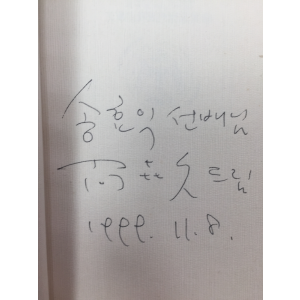 송효익 선배님
드림
1999. 11. 8.